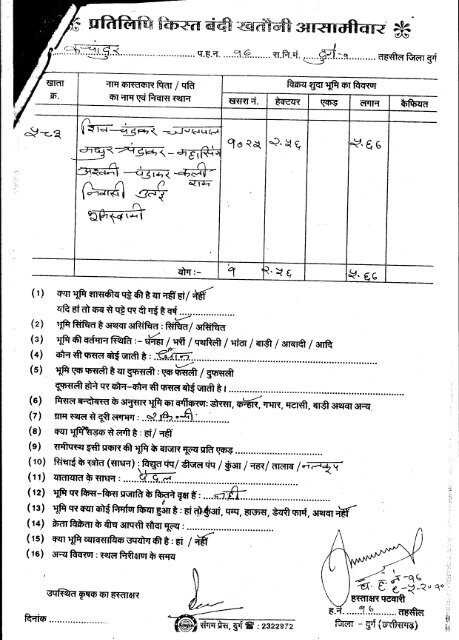 प्रतिलिपि किस्त बंदी खतौनी आसामीवार
कचांदुर प.ह.न. १६ रा.नि.मं. दुर्ग-१ तहसील जिला दुर्ग
खाता क्र. नाम कास्तकार पिता / पति का नाम एवं निवास स्थान विक्रय शुदा भूमि का विवरण
खसरा नं. हेक्टेयर एकड़ लगान कैफियत
५८३ शिव-चंद्राकर १०२५ २.५६ ५.६६
मथुर-चंद्राकर-महासिंग
चंद्राकर-कली
राम
निवासी उतई
भूमिस्वामी
योग :- १ २.५६ ५.६६
(1) क्या भूमि शासकीय पट्टे की है या नहीं हां/ नहीं
यदि हां तो कब से पट्टे पर दी गई है वर्ष
(2) भूमि सिंचित है अथवा असिंचित : सिंचित/ असिंचित
(3) भूमि की वर्तमान स्थिति :- धनहा / भर्री / पथरिली / भांठा / बाड़ी / आबादी / आदि
(4) कौन सी फसल बोई जाती है : धान
(5) भूमि एक फसली है या दुफसली : एक फसली / दुफसली
दूफसली होने पर कौन-कौन सी फसल बोई जाती है।
(6) मिसल बन्दोबस्त के अनुसार भूमि का वर्गीकरण : डोरसा, कन्हार, गभार, मटासी, बाड़ी अथवा अन्य
(7) ग्राम स्थल से दूरी लगभग : २ कि.मी.
(8) क्या भूमि सड़क से लगी है : हां/ नहीं
(9) समीपस्थ इसी प्रकार की भूमि के बाजार मूल्य प्रति एकड़
(10) सिंचाई के स्त्रोत (साधन) : विद्युत पंप/ डीजल पंप / कुंआ / नहर/ तालाब / नलकूप
(11) यातायात के साधन : पैदल
(12) भूमि पर किस-किस प्रजाति के कितने वृक्ष हैं : नहीं
(13) भूमि पर क्या कोई निर्माण किया हुआ है : हां तो कुंआं, पम्प, हाऊस, डेयरी फार्म, अथवा नहीं
(14) क्रेता विक्रेता के बीच आपसी सौदा मूल्य :
(15) क्या भूमि व्यावसायिक उपयोग की है : हां / नहीं
(16) अन्य विवरण : स्थल निरीक्षण के समय
प. ह. नं-१६
उपस्थित कृषक का हस्ताक्षर
हस्ताक्षर पटवारी
ह.नं. १६ तहसील
दिनांक संगम प्रेस, दुर्ग ☎ : 2322972 जिला - दुर्ग (छत्तीसगढ़)